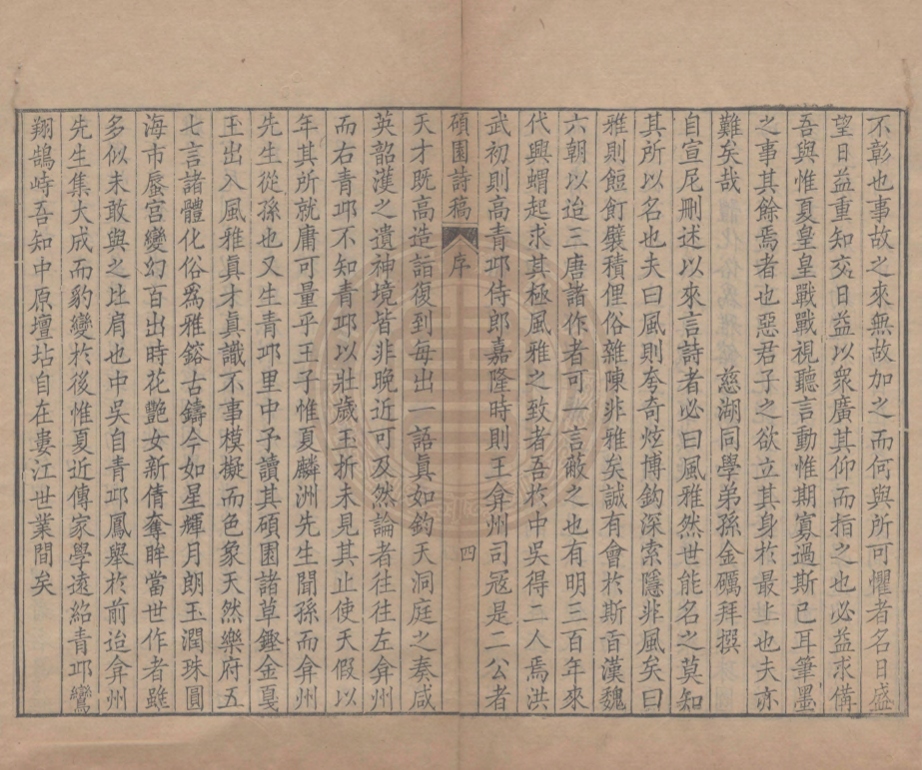 不彰也事故之來無故加之而何與所可懼者名日盛
望日益重知交日益以衆廣其仰而指之也必益求備
吾與惟夏皇皇戰戰視聽言動惟期寡過斯已耳筆墨
之事其餘焉者也惡君子之欲立其身於最上也夫亦
難矣哉 慈湖同學弟孫金礪拜撰
自宣尼刪述以來言詩者必曰風雅然世能名之莫知
其所以名也夫曰風則夸奇炫博鈎深索隱非風矣曰
雅則飽飣襞積俚俗雜陳非雅矣誠有會於斯盲漢魏
六朝以迨三唐諸作者可一言蔽之也有明三百年來
代興蝟起求其極風雅之致者吾於中吳得二人焉洪
武初則高青邱侍郎嘉隆時則王弇州司寇是二公者
碩園詩稿 序 四
天才既高造詣復到每出一語眞如鈞天洞庭之奏咸
英韶漢之遺神境皆非晚近可及然論者往往左弇州
而右青邱不知青邱以壯歲玉折未見其止使天假以
年其所就庸可量乎王子惟夏麟洲先生聞孫而弇州
先生從孫也又生青邱里中予讀其碩園諸草鏗金戛
玉出入風雅眞才眞識不事模擬而色象天然樂府五
七言諸體化俗爲雅鎔古鑄今如星輝月朗玉潤珠圓
海市蜃宮變幻百出時花艷女新倩奪眸當世作者雖
多似未敢與之比肩也中吳自青邱鳳舉於前迨弇州
先生集大成而豹變於後惟夏近傳家學遠紹青邱鸞
翔鵠峙吾知中原壇坫自在婁江世業間矣